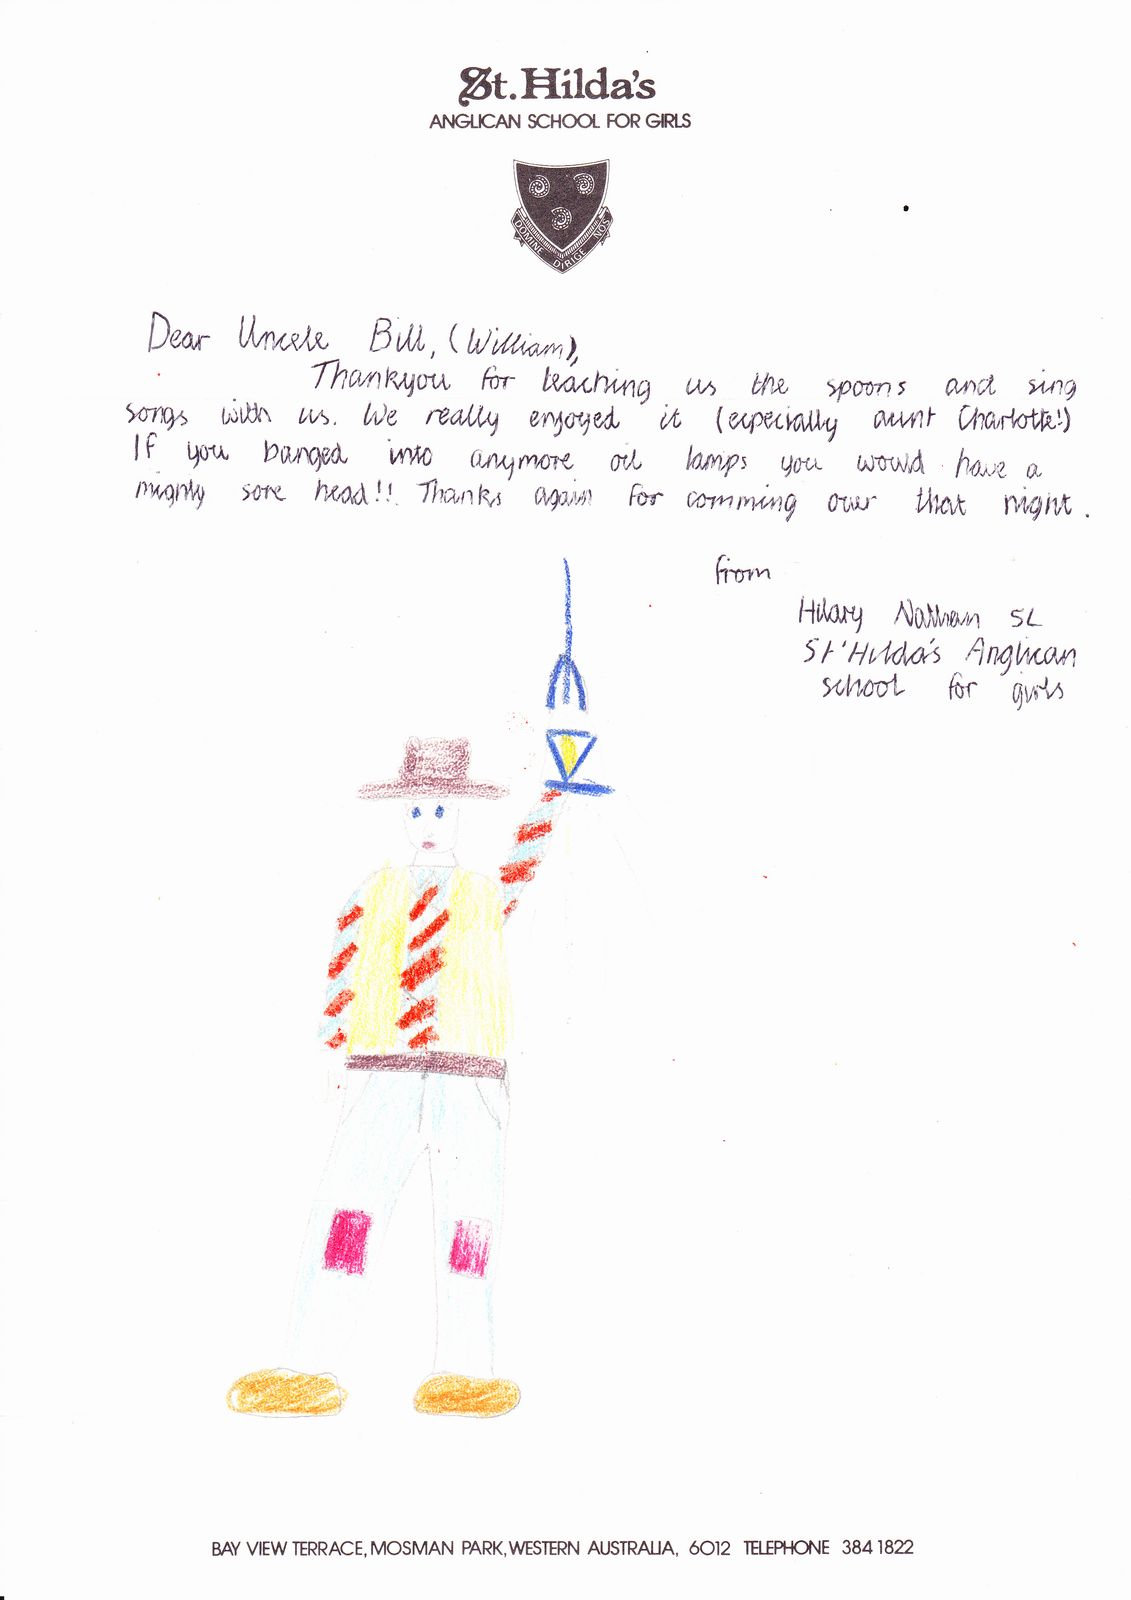 St. Hilda's
ANGLICAN SCHOOL FOR GIRLS
DOMINE DIRIGE NOS
Dear Uncele Bill, (William),
Thankyou for teaching us the spoons and sing
songs with us. We really enjoyed it (especially aunt Charlotte!)
If you banged into anymore oil lamps you would have a
mighty sore head!! Thanks again for comming over that night.
from
Hilary Nathan 5L
St'Hilda's Anglican
school for girls
BAY VIEW TERRACE, MOSMAN PARK, WESTERN AUSTRALIA, 6012 TELEPHONE 384 1822